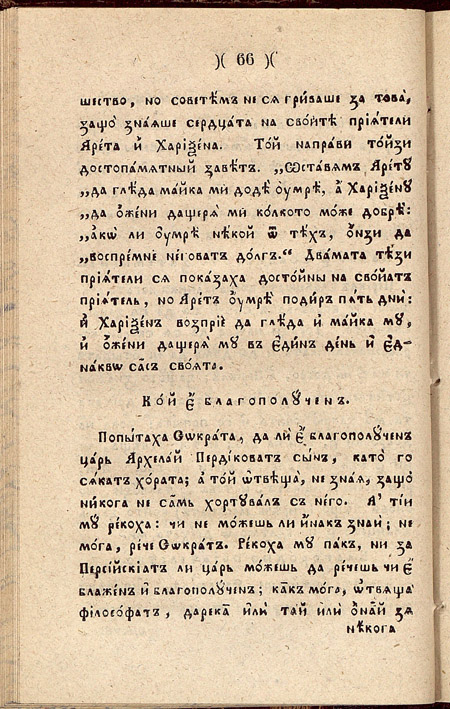 )( 66 )(
шество, но советѣмъ не сѧ грѝваше за това̀,
защо̀ зна́ѧше сердца́та на свои́тѣ прїѧ́тели
Аре́та и҆ Харїѯе́на. То́й напра́ви то́йзи
достопа́мѧтный завѣ́тъ. „Ѡста́вѧмъ Аре́тꙋ
„да глѣ́да ма́йка мѝ додѐ ᲂу҆мре́, а҆ Харїѯе́нꙋ
„да ѻ҆же́ни дащерѧ̀ мѝ ко́лкото мо́же добрѣ̀:
„а҆́кѡ ли ᲂу҆мре́ нѣ́кой ѿ тѣ́хъ, ѻ҆́нзи да
„воспрѐмне не́говатъ до́лгъ.“ Два́мата тѣ́зи
прїѧ́тели сѧ пока́заха досто́йны на сво́йатъ
прїѧ́тель, но Аре́тъ ᲂу҆мрѐ поди́ръ пѧ́ть днѝ:
и҆ Харїѯе́нъ возпрїѐ да глѣ́да и҆ ма́йка мꙋ,
и҆ ѻ҆же́ни дащерѧ̀ мꙋ въ є҆ди́нъ де́нь и҆ є҆д-
на́квѡ са́съ своѧ́та.
Ко́й є҆̀ благополꙋ́ченъ.
Попы́таха Сѡкра́та, да лѝ є҆̀ благополꙋ́ченъ
ца́рь Архела́й Перді́коватъ сы́нъ, като̀ го
сѧ́катъ хо́рата; а҆ то́й ѿвѣща̀, не зна́ѧ, защо̀
ни́кога не са́мь хортꙋва́лъ съ не́го. А҆ ті́и
мꙋ̀ ре́коха: чи не мо́жешь ли и҆́накъ зна́й; не
мо́га, ре́че Сѡкра́тъ. Ре́коха мꙋ па́къ, ни за
Персі́йскїатъ ли ца́рь мо́жешь да ре́чешь чи є҆̀
блаже́нъ и҆ благополꙋ́ченъ; ка́къ мо́га, ѿвѧща̀
фїлосо́фатъ, дарека̀ и҆лѝ та́й и҆лѝ ѻ҆на́й зѧ
нѣ́кога